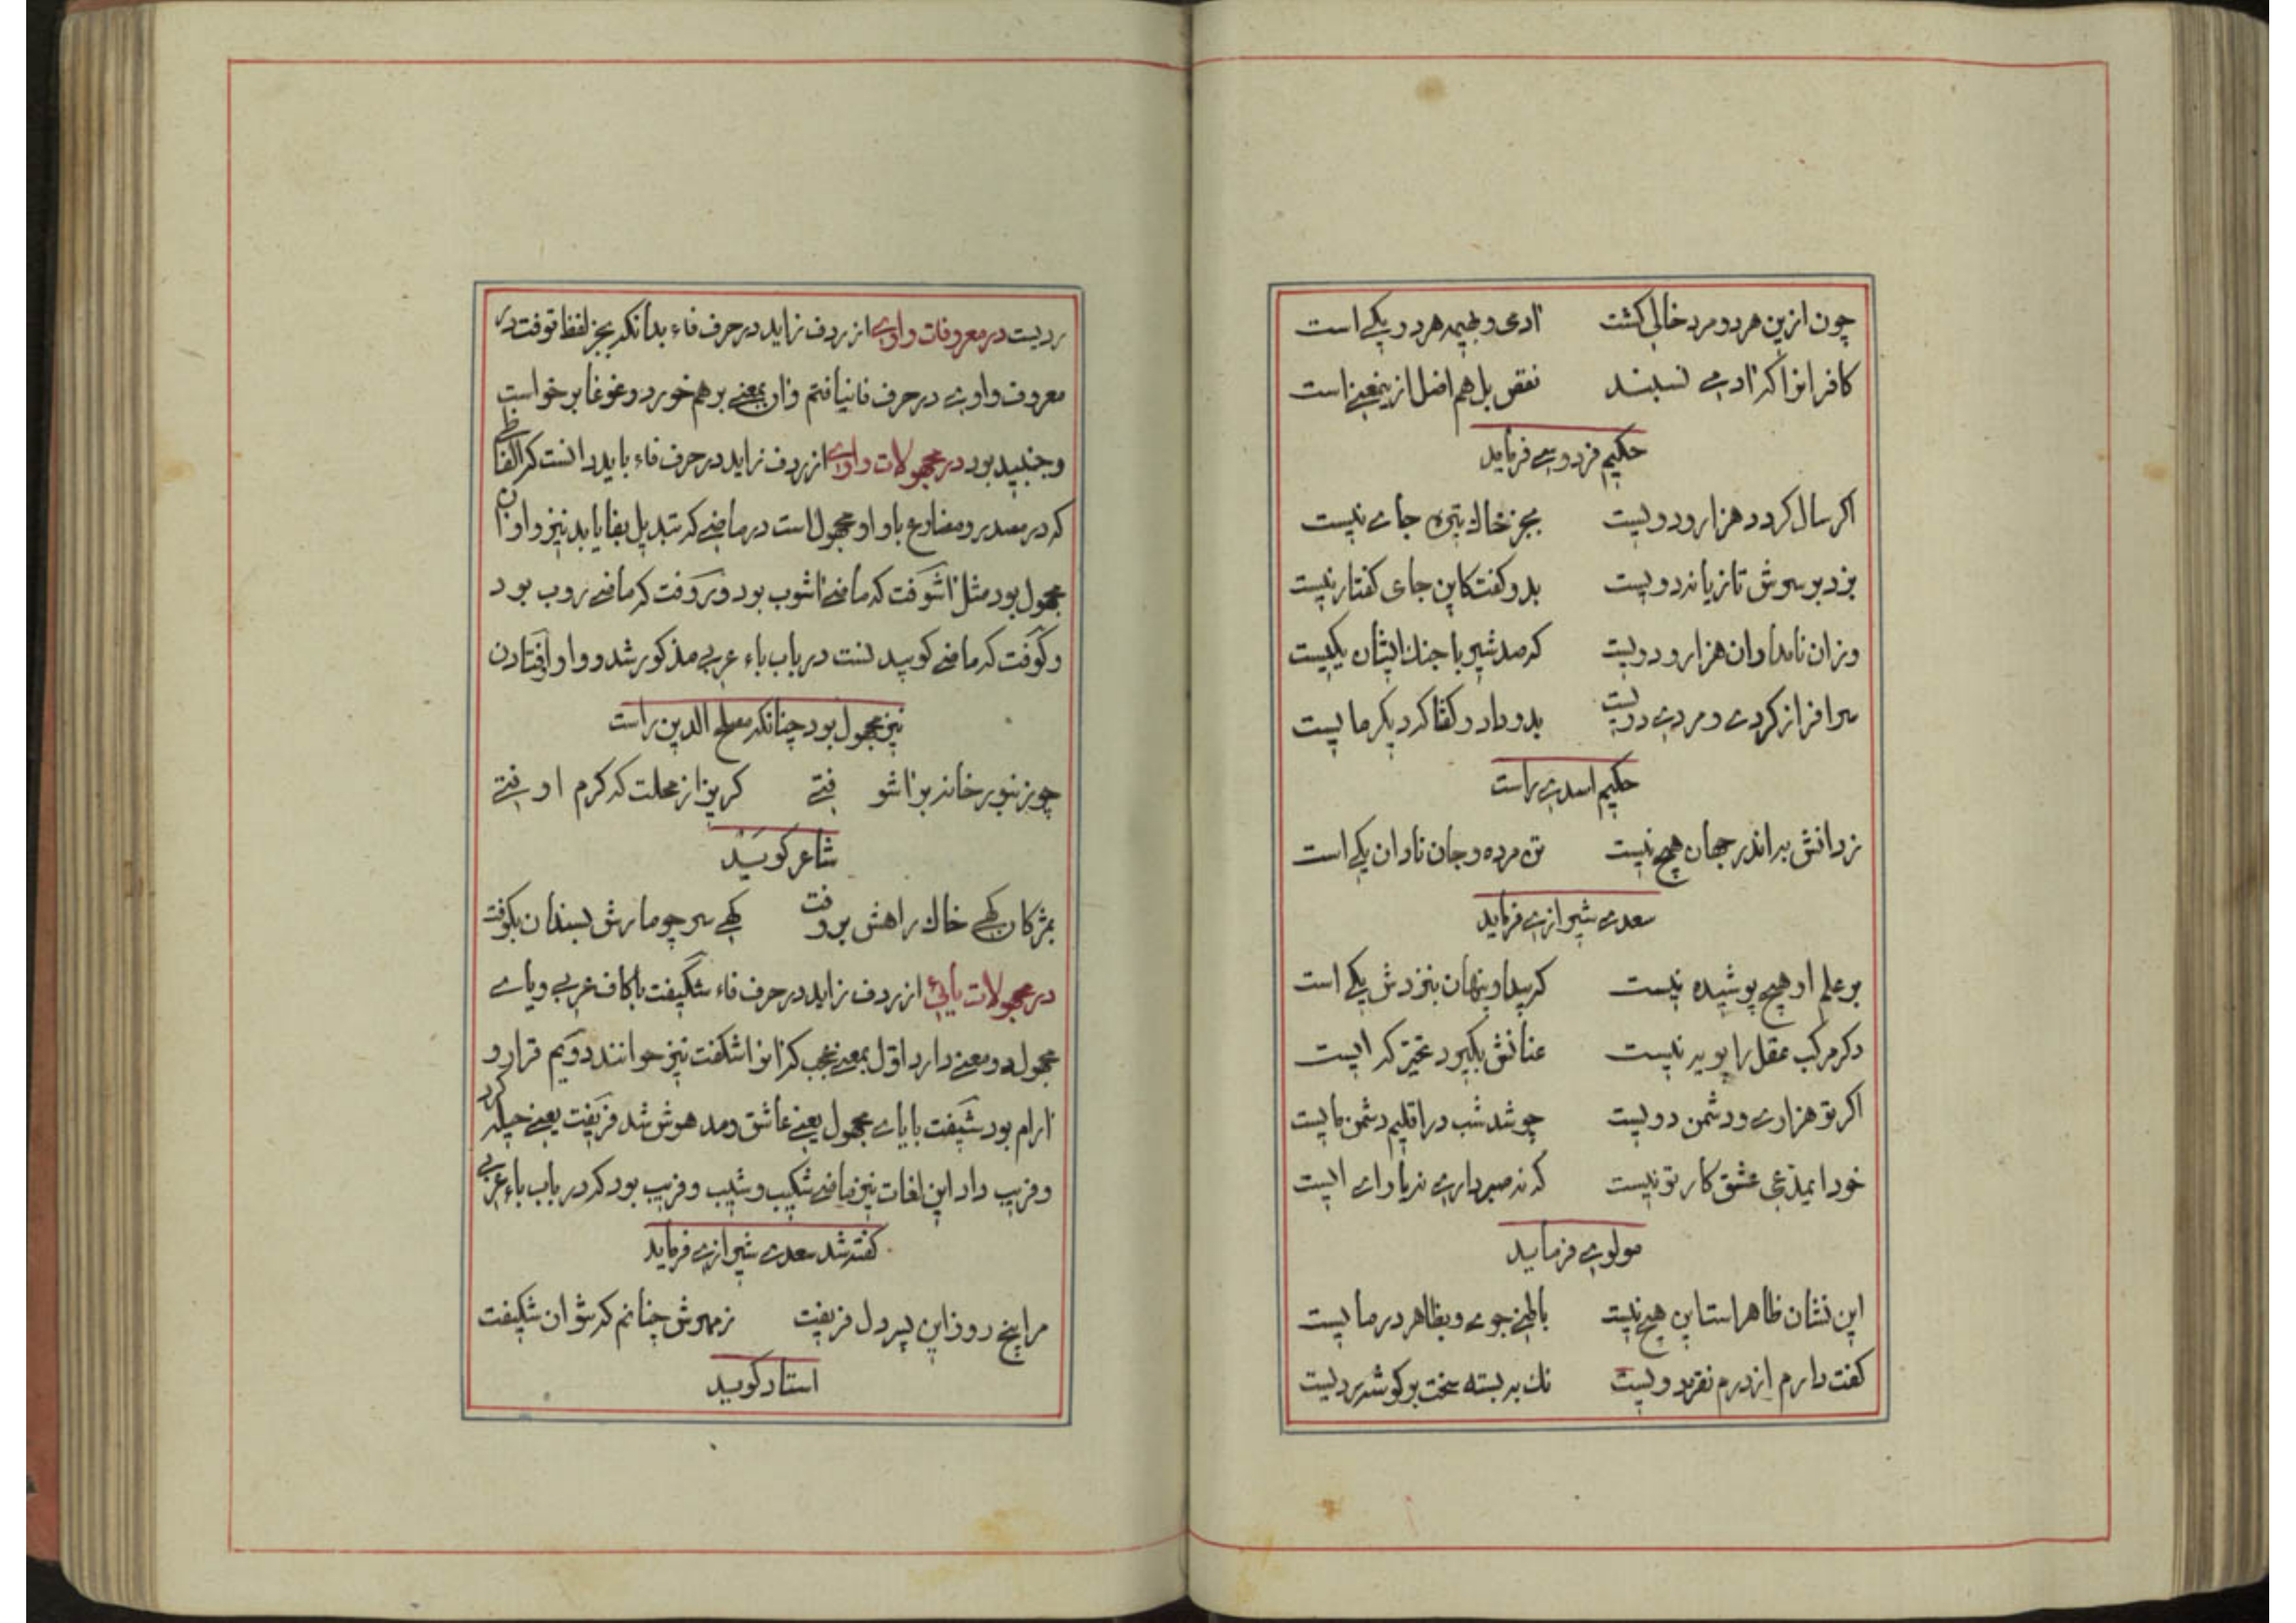 چون ازین هر دو مرد خالی کشت ادمی و بهیمه هر دو یکی است
کافرانرا که ادمی نسبند نقص بل هم اضل ازینمعنی است
حکیم فردوسی فرماید
اکر سال کردد هزار و دویست بجز خاك تیره جای نیست
بزد بر سرش تازیانه دویست بدو کفت کاین جای کفتار نیست
وزان نامداران هزار و دویست که صد شیر با جنك ایشان یکیست
سرافراز کردی و مردی دویست بدو داد و کفتا که دیکر مایست
حکیم اسدی راست
ز دانش به اندر جهان هیچ نیست تن مرده و جان نادان یکی است
سعدی شیرازی فرماید
بر علم او هیچ پوشیده نیست که پیدا و پنهان بنزدش یکی است
دکر مرکب عقل را پویه نیست عنانش بکیرد تحیر که ایست
اکر تو هزاری و دشمن دویست چو شد شب در اقلیم دشمن مایست
خود ایمدعی عشق کار تو نیست که نه صبر داری نه یارای ایست
مولوی فرماید
این نشان ظاهر است این هیچ نیست باطنی جوی و بظاهر در مایست
کفت دارم از درم نقره دویست نك بربسته سخت بر کوشه ردیست
ردیست در معروفات واوی از ردف زاید در حرف فاء بدانکه بجز لفظ توفت در
معروف واوی در حرف فا نیافتم وان بمعنی برهم خورد و غوغا برخواست
و جنبید بود در مجهولات واوی از ردف زاید در حرف فاء باید دانست که الفاظی
که در مصدر و مضارع با واو مجهول است در ماضی که تبدیل بفا یابد نیز واو ان
مجهول بود مثل اشوفت که ماضی اشوب بود و روفت که ماضی روب بود
و کوفت که ماضی کوبیدنست در باب باء عربی مذکور شد و واو اوفتادن
نیز مجهول بود چنانکه مصلح الدین راست
چو زنبور خانه براشوفتی کریز از محلت که کرم اوفتی
شاعر کوید
بمژکان کهی خاك راهش بروفت کهی سر چو مارش بسندان بکوفت
در مجهولات یائی از ردف زاید در حرف فاء شکیفت با کاف عربی و یای
مجهول دو معنی دارد اول بمعنی عجب که انرا اشکفت نیز خوانند دویم قرار و
ارام بود شیفت با یای مجهول یعنی عاشق و مدهوش شد فریفت یعنی حیله کرد
و فریب داد این لغات نیز ماضی شکیب و شیب و فریب بود که در باب باء عربی
کفته شد سعدی شیرازی فرماید
مرا پنج روز این پسر دل فریفت ز مهرش چنانم که نتوان شکیفت
استاد کوید